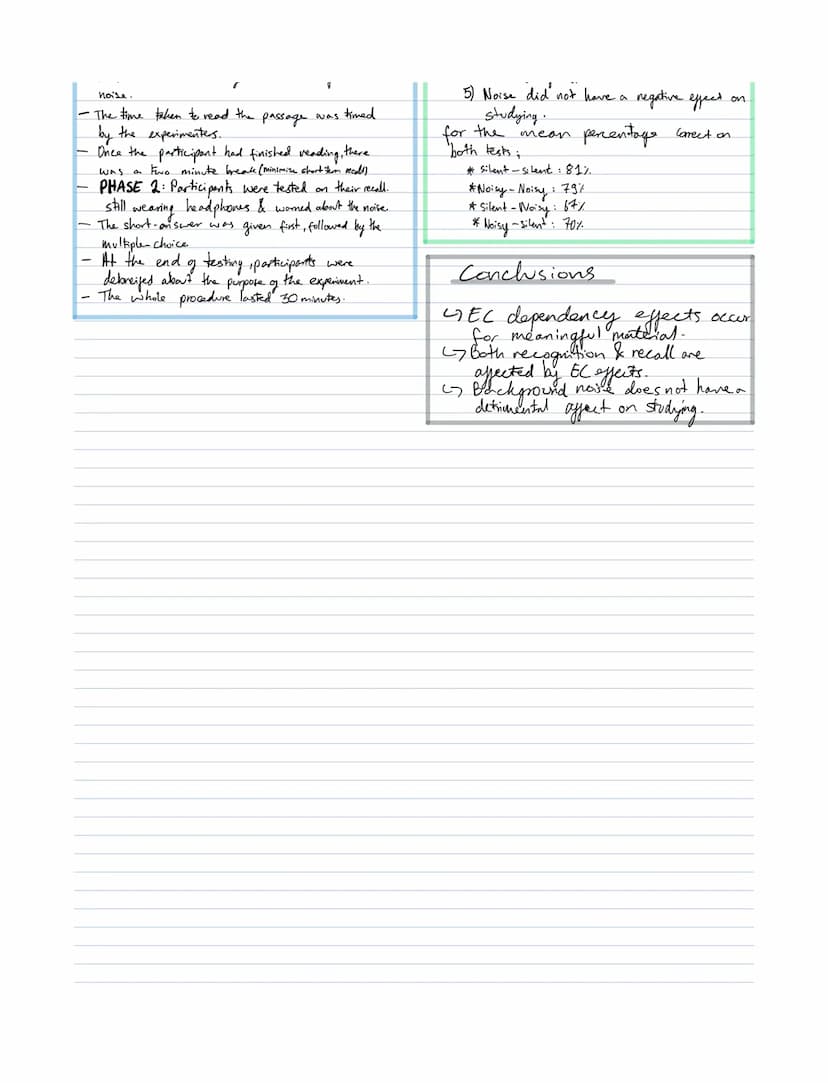 noise.
- The time taken to read the passage was timed
by the experimenters.
- Once the participant had finished reading, there
was a two minute break (minimise short term recall)
- PHASE 2: Participants were tested on their recall.
still wearing headphones & warned about the noise.
- The short-answer was given first, followed by the
multiple choice
- At the end of testing, participants were
debreifed about the purpose of the experiment.
- The whole procedure lasted 30 minutes.
5) Noise did not have a negative effect on
studying.
for the mean percentage correct on
both tests;
* Silent - silent : 81%
* Noisy - Noisy : 79%
* Silent - Noisy : 67%
* Noisy - silent : 70%
Conclusions
↳ EC dependency effects occur
for meaningful material.
↳ Both recognition & recall are
affected by EC effects.
↳ Background noise does not have a
detrimental affect on studying.